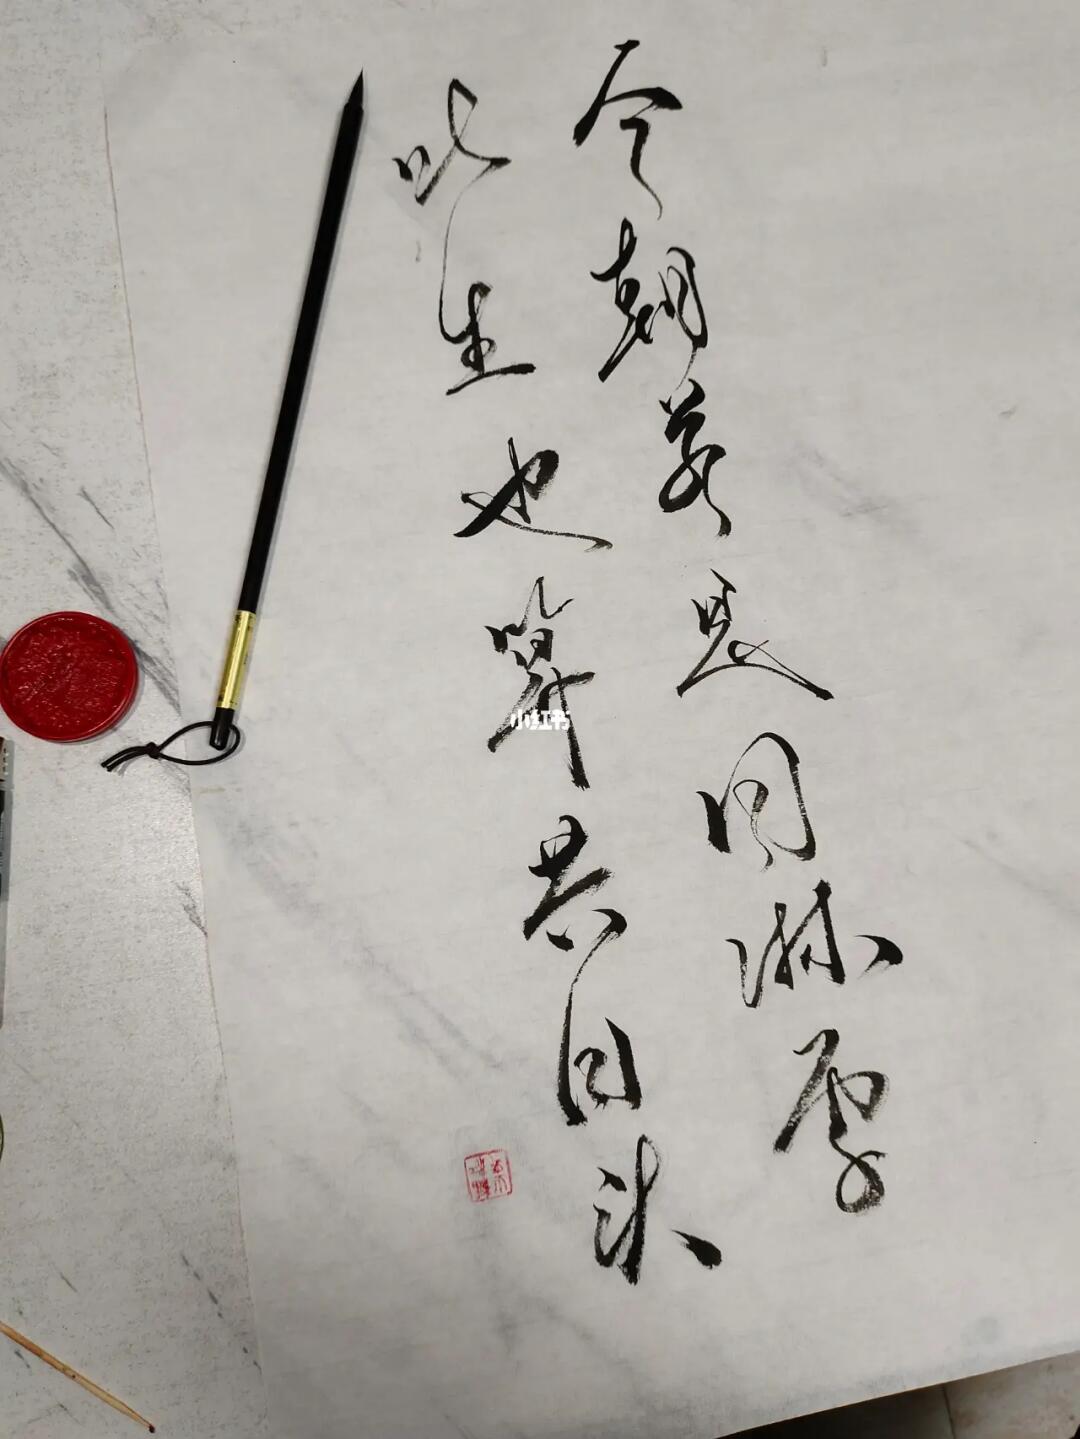 今朝若是同淋雪
此生也算共白头
小红书